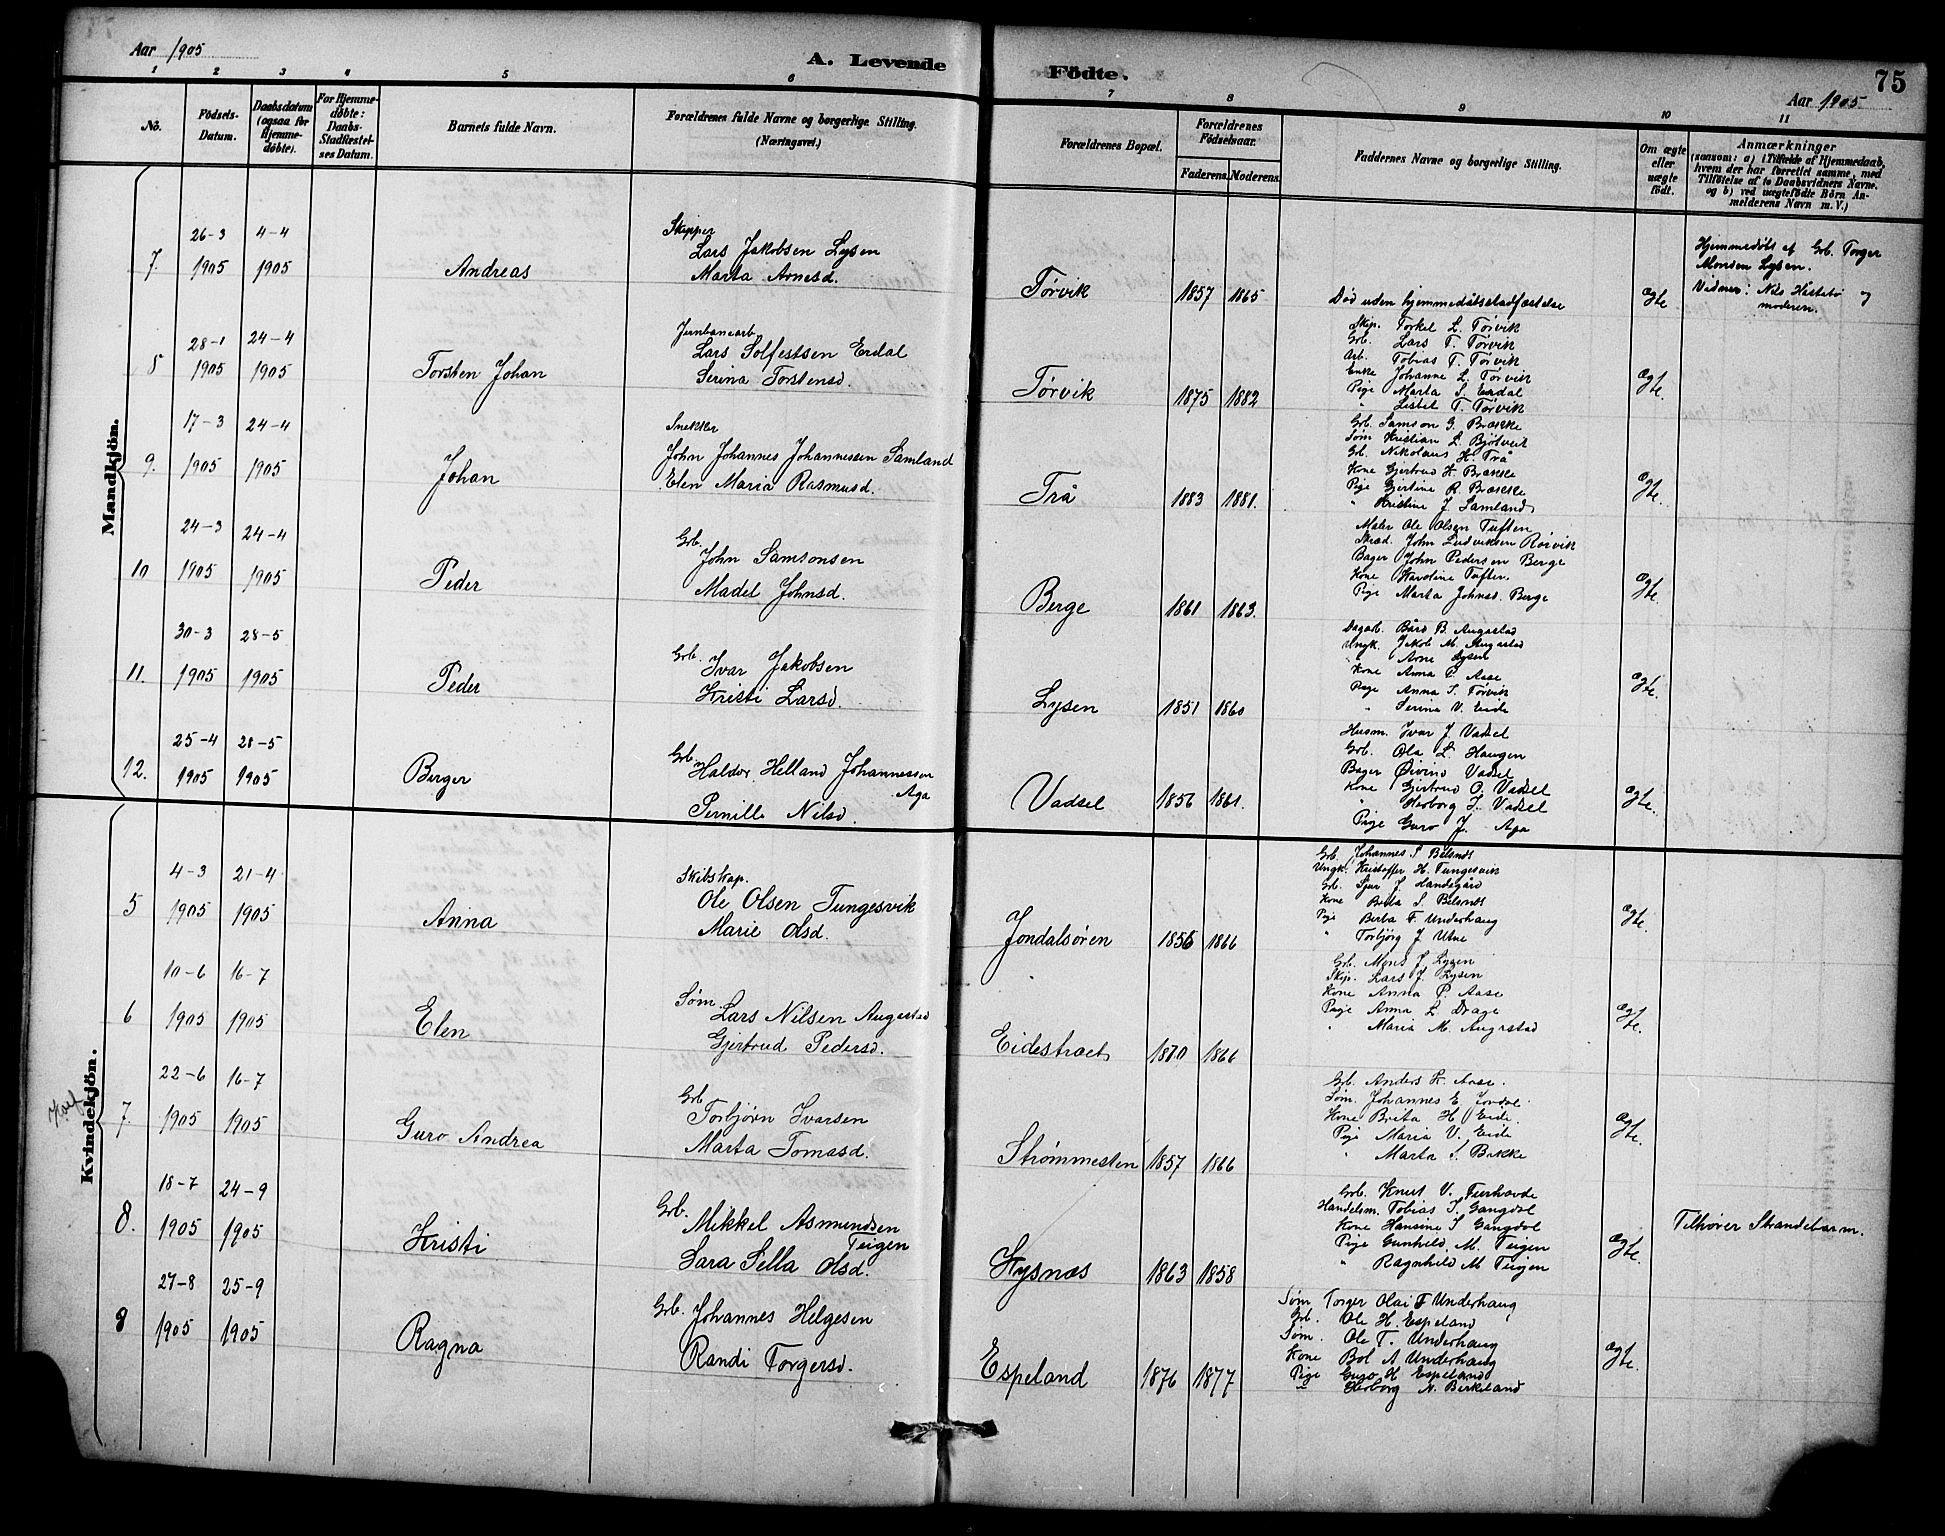 Aar 1905
A. Levende Fødte.
75
Aar 1905
1 2 3 4 5 6 7 8 9 10 11
No.
Fødsels-Datum.
Daabsdatum (ogsaa for Hjemmedøbte).
For Hjemmedøbte: Daabs-Stadfæstelses Datum.
Barnets fulde Navn.
Forældrenes fulde Navne og borgerlige Stilling. (Næringsvei.)
Forældrenes Bopæl.
Forældrenes Fødselsaar.
Faderens. Moderens.
Faddernes Navne og borgerlige Stilling.
Om ægte eller uægte født.
Anmærkninger
(saasom: a) i Tilfælde af Hjemmedaab, hvem der har forrettet samme, med Tilføielse af to Daabsvidners Navne, og b) ved uægtefødte Børn Anmelderens Navn m. V.)
Mandkjön.
7. 26-3 1905 4-4 1905
Andreas
Skipper
Lars Jakobsen Lysen
Marta Arnesd.
Tørvik 1857 1865
Død uden hjemmedåbsstadfæstelse
Ægte
Hjemmedøbt af Grb. Torger
Monsen Lysen.
Vidner: Nils Håstabø og
moderen.
8 28-1 1905 24-4 1905
Torsten Johan
Jernbanearb
Lars Solfestsen Erdal
Serina Torstensd.
Tørvik 1875 1882
Skip. Torkel L. Tørvik
Grb. Lars T. Tørvik
Arb. Tobias T. Tørvik
Enke Johanne L. Tørvik
Pige Marta S. Erdal
" Lisbet T. Tørvik
Ægte.
9. 17-3 1905 24-4 1905
Johan
Snekker
John Johannes Johannessen Samland
Elen Maria Rasmusd.
Trå 1883 1881.
Grb. Samson G. Brække
Søm Kristian L. Bjotveit
Gb. Nikolaus H. Trå
Kone Gjertrud H. Brække
Pige Gjertine R. Brække
" Kristine J. Samland
Ægte.
10 24-3 1905 24-4 1905
Peder
Grb.
John Samsonsen
Madel Johnsd.
Berge 1861 1863.
Maler Ole Olsen Tuften
Skræd. John Ludviksen Rørvik
Bager John Pedersen Berge
Kone Karoline Tuften.
Pige Marta Johnsd. Berge
Ægte.
11. 30-3 1905 28-5 1905
Peder
Grb.
Ivar Jakobsen
Kristi Larsd.
Lysen 1851 1860
Dagarb. Bård B. Augastad
Ungk. Jakob M. Augastad
" Arne Lysen
Kone Anna P. Aase
Pige Anna S. Tørvik
" Serina V. Eide
Ægte.
12. 25-4 1905 28-5 1905
Berger
Grb.
Haldor Helland Johannessen
Aga
Pernille Nilsd.
Vadsel 1856 1861.
Husm. Ivar J. Vadsel
Grb. Ola L. Haugen
Bager Øivind Vadsel
Kone Gjertrud O. Vadsel
" Herborg I. Vadsel
Pige Guro J. Aga
Ægte.
Kvindekjön.
5 4-3 1905 21-4 1905
Anna
Skibskap.
Ole Olsen Tungesvik
Marie Olsd.
Jondalsøren 1856 1866
Grb. Johannes S Belsnæs
Ungk. Kristoffer H. Tungesvik
Grb. Sjur J. Handegård
Kone Brita S. Belsnæs
Pige Berta T. Underhaug
" Torbjörg J Utne
Ægte.
6 10-6 1905 16-7 1905
Elen
Søm.
Lars Nilsen Augastad
Gjertrud Pedersd.
Eidestræet 1870 1866
Grb. Mons J Lysen
Skip. Lars J Lysen
Kone Anna P. Aase
Pige Anna L. Drage
" Maria M. Augastad
Ægte.
7. 22-6 1905 16-7 1905
Guro Andrea
Grb
Torbjörn Ivarsen
Marta Tomasd.
Strømmesten 1857 1866
Grb. Anders K. Aase.
Søm. Johannes E.
Kone Brita H. Eide.
Pige Maria V. Eide
" Marta S. Bakke
Ægte.
8. 18-7 1905 24-9 1905
Kristi
Grb.
Mikkel Asmundsen
Teigen
Sara Sella Olsd.
Kysnæs 1863 1858
Grb. Knut V.
Handelsm. Tobias S. Gangdal
Kone Hansine S Gangdal
Pige Gunhild M. Teigen
" Ragnhild M Teigen
Ægte.
Tilhører Strandebarm.
9 27-8 1905 25-9 1905
Ragna
Grb. Johannes Helgesen
Randi Torgersd.
Espeland 1876 1877
Søm Torger Olai T Underhaug
Grb. Ole H. Espeland
Søm. Ole T. Underhaug
Kone Bol A Underhaug
Pige Guro H Espeland
" Herborg N. Birkeland
Ægte.